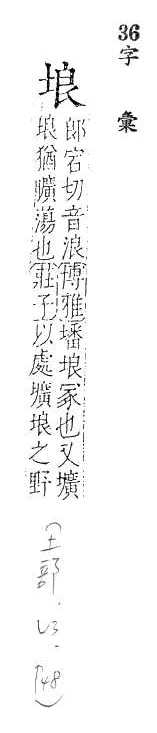 36字
彙
埌
郎宕切音浪博雅墦埌冢也又壙
埌猶曠蕩也莊子以處壙埌之野
(土部.